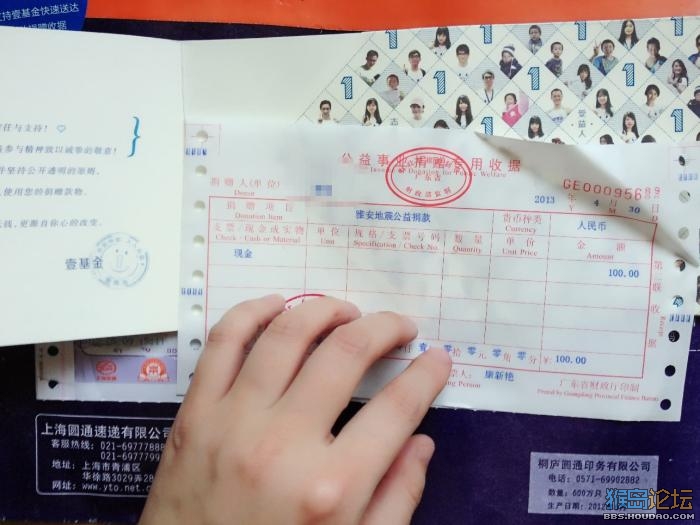 支持壹基金快速送达
任与支持!
参与精神致以诚挚的敬意!
坚持公开透明的原则,
使用您的捐赠款物。
更源自你心的改变。
壹基金
受益人
公益事业捐赠专用收据
Donation for Public Welfare
广东省
财政部监制
捐赠人(单位)
Donor
2013
4
月
30
GE0009568
Y
M
D
捐赠项目
Donation Item
雅安地震公益捐款
货币种类
Currency
人民币
支票/现金或实物
Check / Cash or Material
单位
Unit
规格/支票号码
Specification / Check No.
数量
Quantity
单价
Unit Price
金额
Amount
现金
100.00
第二联 收据
Receipt
仟 壹 零 拾 零 元 零 角 零 分 ¥: 100.00
票人: 康新艳
ing Person
广东省财政厅印制
Printed by Guangdong Provincial Finance Bureau
上海圆通速递有限公司
客服热线: 021-69777888
021-6977799
地址: 上海市青浦区
华徐路3029弄28
www.yto.net.c
桐庐圆通印务有限公司
电话: 0571-69902882
数量: 600万只
生产日期: 201
猴岛论坛
BBS.HOUDAO.COM